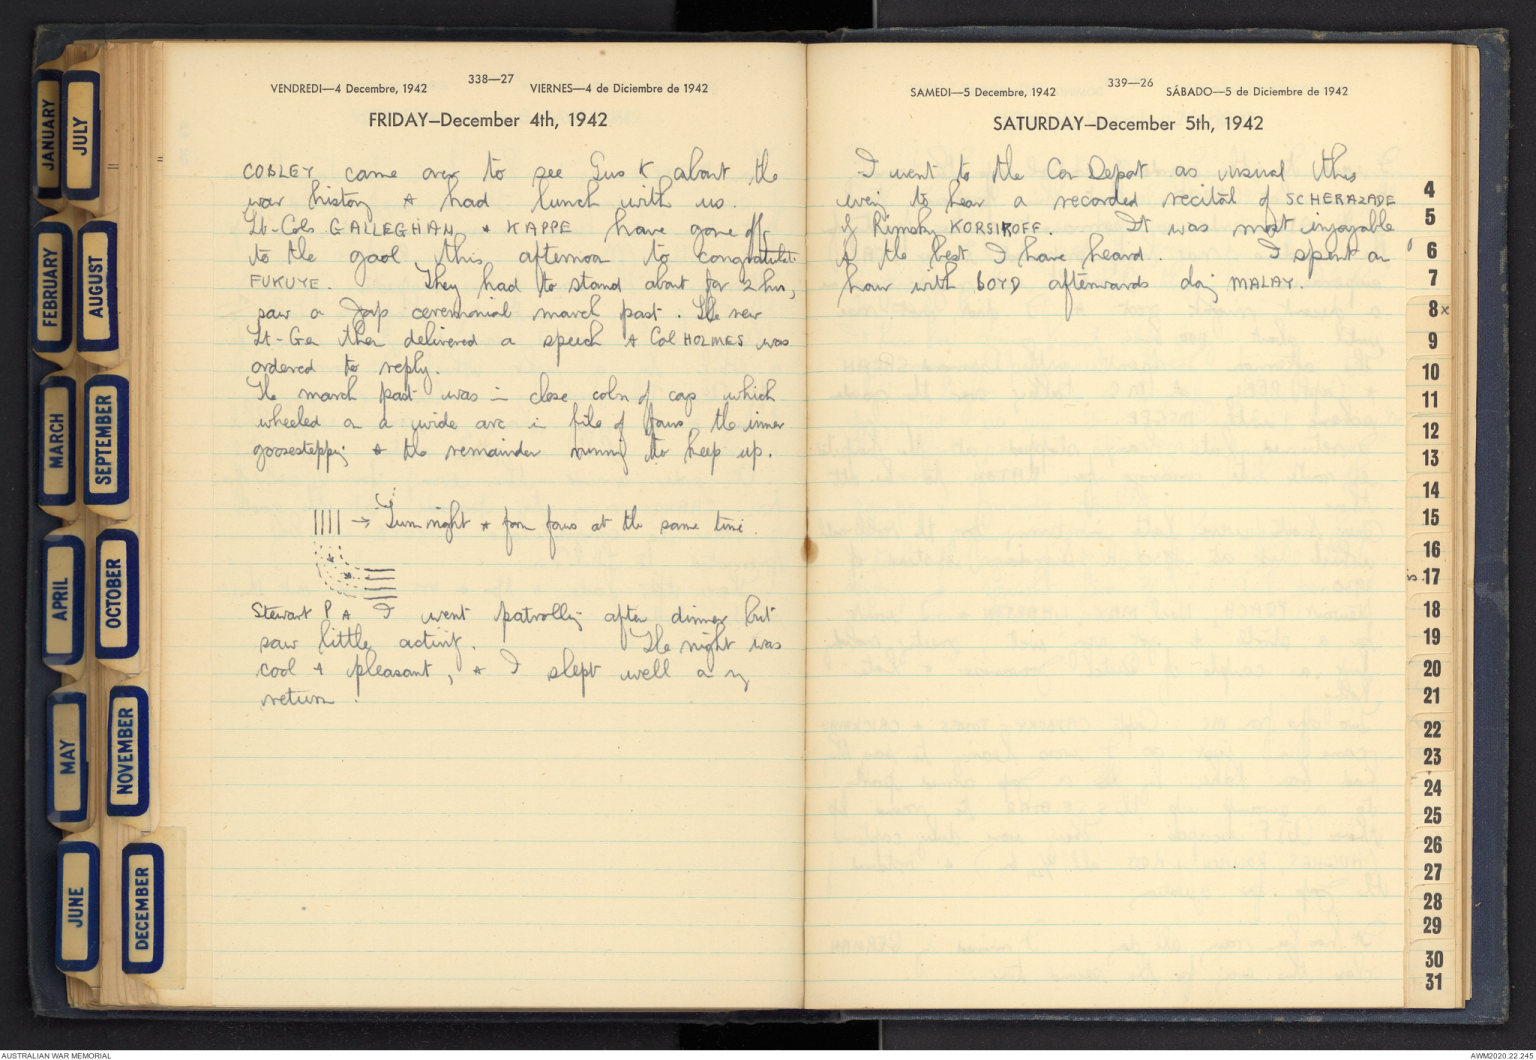 JANUARY
JULY
FEBRUARY
AUGUST
MARCH
SEPTEMBER
APRIL
OCTOBER
MAY
NOVEMBER
JUNE
DECEMBER
338—27
VENDREDI—4 Decembre, 1942 VIERNES—4 de Diciembre de 1942
FRIDAY—December 4th, 1942
COBLEY came over to see Gus K about the
war history & had lunch with us.
Lt-Cols GALLEGHAN & KAPPE have gone off
to the gaol this afternoon to congratulate
FUKUYE. They had to stand about for 2 hrs,
saw a Jap ceremonial march past. The new
Lt-Gen then delivered a speech & Col HOLMES was
ordered to reply.
The march past was in close coln of coys which
wheeled on a wide arc in file of fours the inner
goosestepping & the remainder running to keep up.
→ Turn right & form fours at the same time.
Stewart P & I went patrolling after dinner but
saw little activity. The night was
cool & pleasant, & I slept well on my
return.
339—26
SAMEDI—5 Decembre, 1942 SÁBADO—5 de Diciembre de 1942
SATURDAY—December 5th, 1942
I went to the Con Depot as usual this
evening to hear a recorded recital of SCHERAZADE
of Rimsky KORSIKOFF. It was most enjoyable
& the best I have heard. I spent an
hour with BOYD afterwards doing MALAY.
4
5
6
7
8x
9
10
11
12
13
14
15
16
17
18
19
20
21
22
23
24
25
26
27
28
29
30
31
AUSTRALIAN WAR MEMORIAL
AWM2020.22.245